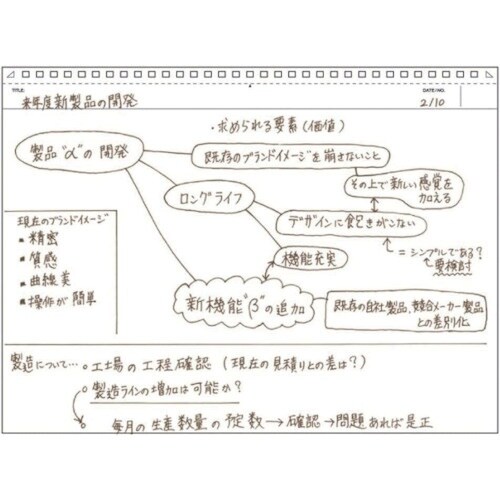 TITLE:
DATE/NO.
来年度新製品の開発
2/10
・求められる要素(価値)
製品"α"の開発
既存のブランドイメージを崩さないこと
その上で新しい感覚を
加える
ロングライフ
デザインに飽きがこない
=シンプルである?
要検討
機能充実
現在のブランドイメージ
・精密
・質感
・曲線美
・操作が簡単
新機能"β"の追加
既存の自社製品、競合メーカー製品
との差別化
製造について…。工場の工程確認(現在の見積りとの差は?)
製造ラインの増加は可能か?
毎月の生産数量の予定数→確認→問題あれば是正